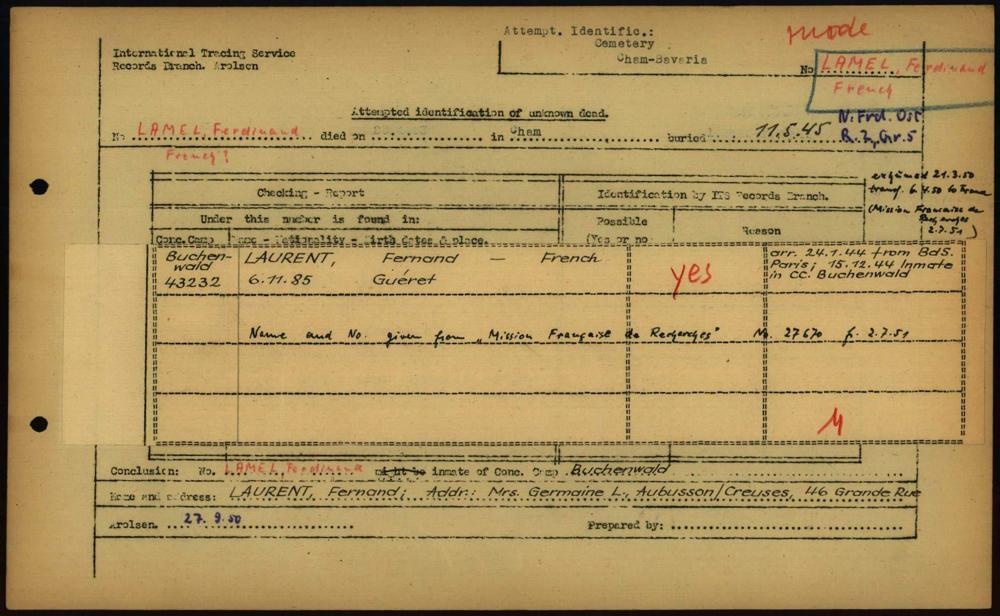 Attempt. Identific.:
Cemetery
Cham-Bavaria
mode
International Tracing Service
Records Branch. Arolsen
No LAMEL, Ferdinand
French
Attempted identification of unknown dead.
N. Frd. Ost
R. 2, Gr. 5
No LAMEL, Ferdinand died on in Cham buried 11.5.45
French?
exhumed 21.3.50
transf. 6.4.50 to France
(Mission Francaise de
Recherches
2.7.51)
Checking - Report
Identification by ITS Records Branch.
Under this number is found in:
Possible
(Yes or no
Reason
Conc. Camp Name - Nationality - Birth dates & place.
Buchen-
wald
43232
LAURENT, Fernand - French
6.11.85 Guéret
yes
arr. 24.1.44 from BdS.
Paris; 15.12.44 Inmate
in CC. Buchenwald
Name and No. given from „Mission Française de Recherches" No. 27670 f. 2.7.51
Conclusion: No. LAMEL Ferdinand might be inmate of Conc. Camp Buchenwald
Home and address: LAURENT, Fernand; Addr.: Mrs. Germaine L., Aubusson/Creuses, 46 Grande Rue
Arolsen. 27. 9. 50 Prepared by: